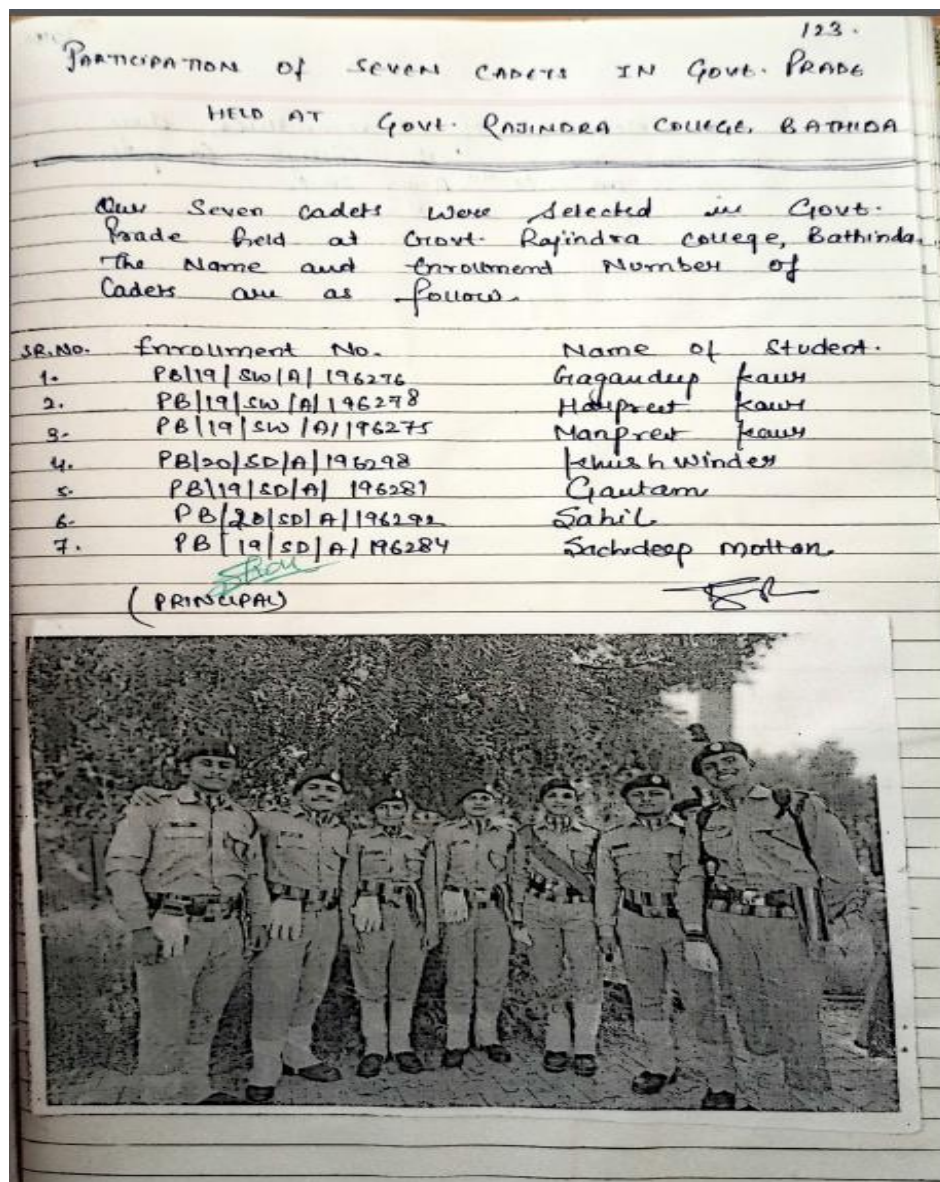 123.
PARTICIPATION OF SEVEN CADETS IN GOVT. PRADE
HELD AT GOVT. RAJINDRA COLLEGE, BATHIDA
Our Seven cadets were selected in Govt.
Prade held at Govt. Rajindra college, Bathinda.
The Name and Enrollmend Number of
Cadets are as follow.
SR.NO. Enrollment No. Name of Student.
1. PB/19/SW/A/196276 Gagandeep kaur
2. PB/19/SW/A/196278 Harpreet kaur
3. PB/19/SW/A/196275 Manpreet kaur
4. PB/20/SD/A/196298 Khushwinder
5. PB/19/SD/A/196281 Gautam
6. PB/20/SD/A/196292 Sahil
7. PB/19/SD/A/196284 Sachdeep Motton
(PRINCIPAL)